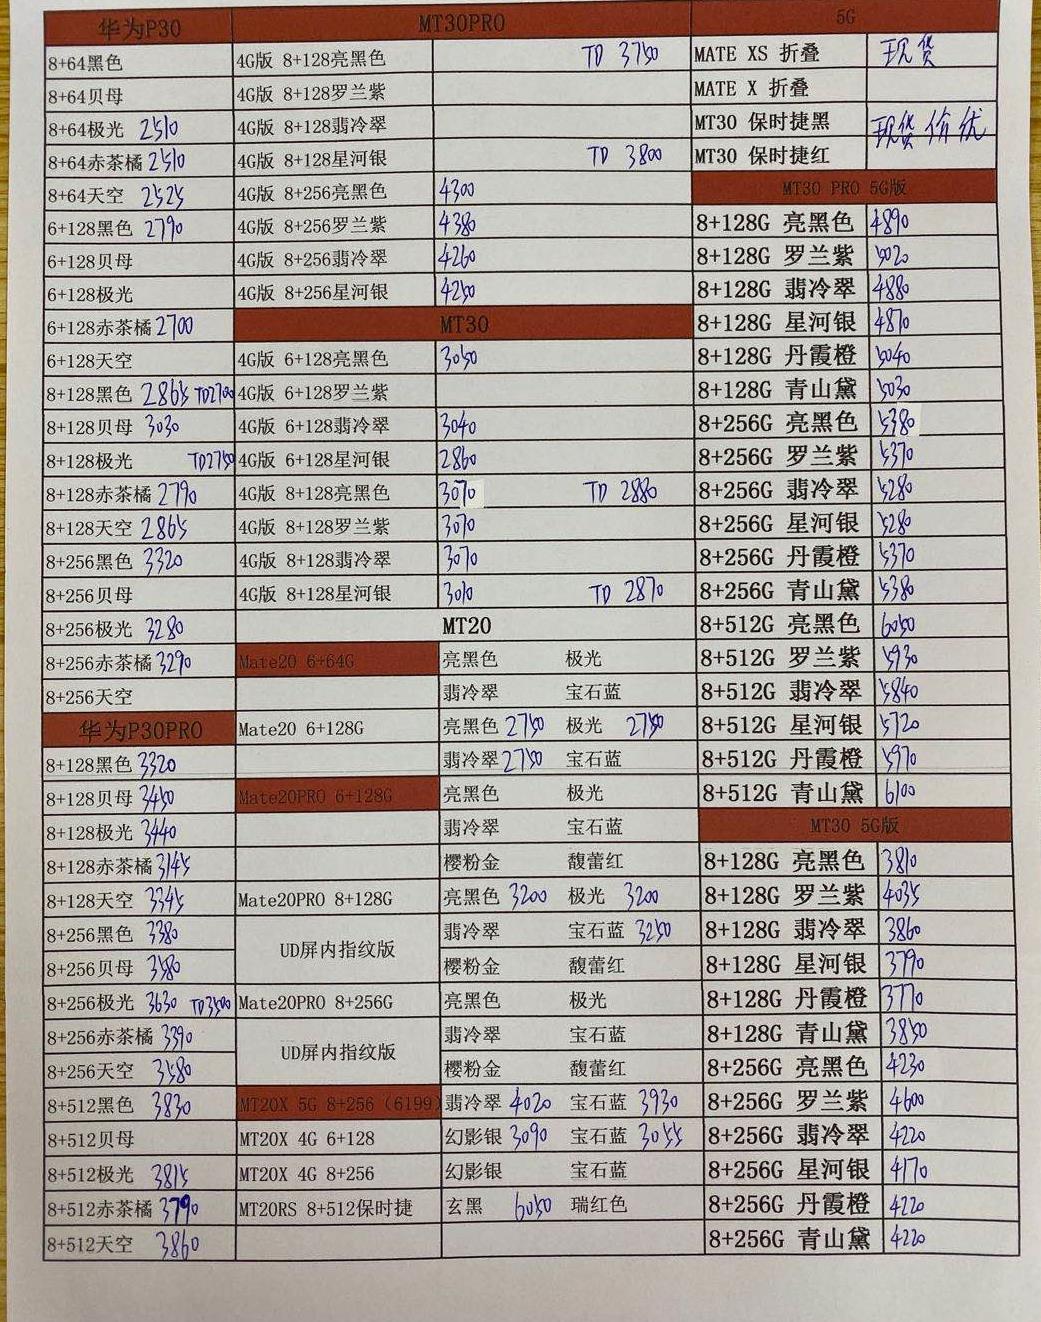 华为P30 MT30PRO 5G
8+64黑色 4G版 8+128亮黑色 TD 3750 MATE XS 折叠 现货
8+64贝母 4G版 8+128罗兰紫 MATE X 折叠
8+64极光 2510 4G版 8+128翡冷翠 MT30 保时捷黑 现货 价优
8+64赤茶橘 2510 4G版 8+128星河银 TD 3800 MT30 保时捷红
8+64天空 2525 4G版 8+256亮黑色 4300 MT30 PRO 5G版
6+128黑色 2790 4G版 8+256罗兰紫 4380 8+128G 亮黑色 4890
6+128贝母 4G版 8+256翡冷翠 4260 8+128G 罗兰紫 5020
6+128极光 4G版 8+256星河银 4250 8+128G 翡冷翠 4880
6+128赤茶橘 2700 MT30 8+128G 星河银 4870
6+128天空 4G版 6+128亮黑色 3050 8+128G 丹霞橙 5040
8+128黑色 2865 TD2700 4G版 6+128罗兰紫 8+128G 青山黛 5030
8+128贝母 3030 4G版 6+128翡冷翠 3040 8+256G 亮黑色 5380
8+128极光 TD2750 4G版 6+128星河银 2860 8+256G 罗兰紫 5370
8+128赤茶橘 2790 4G版 8+128亮黑色 3070 TD 2880 8+256G 翡冷翠 5280
8+128天空 2865 4G版 8+128罗兰紫 3070 8+256G 星河银 5280
8+256黑色 3320 4G版 8+128翡冷翠 3070 8+256G 丹霞橙 5370
8+256贝母 4G版 8+128星河银 3010 TD 2870 8+256G 青山黛 5380
8+256极光 3280 MT20 8+512G 亮黑色 6050
8+256赤茶橘 3290 Mate20 6+64G 亮黑色 极光 8+512G 罗兰紫 5930
8+256天空 翡冷翠 宝石蓝 8+512G 翡冷翠 5840
华为P30PRO Mate20 6+128G 亮黑色 2750 极光 2750 8+512G 星河银 5720
8+128黑色 3320 翡冷翠 2750 宝石蓝 8+512G 丹霞橙 5970
8+128贝母 3450 Mate20PRO 6+128G 亮黑色 极光 8+512G 青山黛 6100
8+128极光 3440 翡冷翠 宝石蓝 MT30 5G版
8+128赤茶橘 3145 樱粉金 馥蕾红 8+128G 亮黑色 3810
8+128天空 3345 Mate20PRO 8+128G 亮黑色 3200 极光 3200 8+128G 罗兰紫 4035
8+256黑色 3380 UD屏内指纹版 翡冷翠 宝石蓝 3250 8+128G 翡冷翠 3860
8+256贝母 3580 樱粉金 馥蕾红 8+128G 星河银 3790
8+256极光 3630 TD3500 Mate20PRO 8+256G 亮黑色 极光 8+128G 丹霞橙 3770
8+256赤茶橘 3390 UD屏内指纹版 翡冷翠 宝石蓝 8+128G 青山黛 3850
8+256天空 3580 樱粉金 馥蕾红 8+256G 亮黑色 4230
8+512黑色 3830 MT20X 5G 8+256（6199） 翡冷翠 4020 宝石蓝 3930 8+256G 罗兰紫 4600
8+512贝母 MT20X 4G 6+128 幻影银 3090 宝石蓝 3055 8+256G 翡冷翠 4220
8+512极光 3815 MT20X 4G 8+256 幻影银 宝石蓝 8+256G 星河银 4170
8+512赤茶橘 3790 MT20RS 8+512保时捷 玄黑 6050 瑞红色 8+256G 丹霞橙 4220
8+512天空 3860 8+256G 青山黛 4220